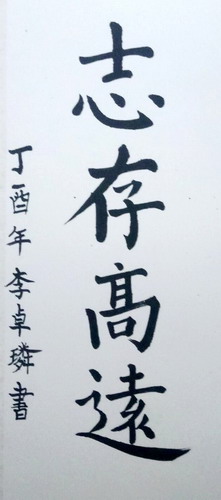 志存髙遠
丁酉年李卓璘書